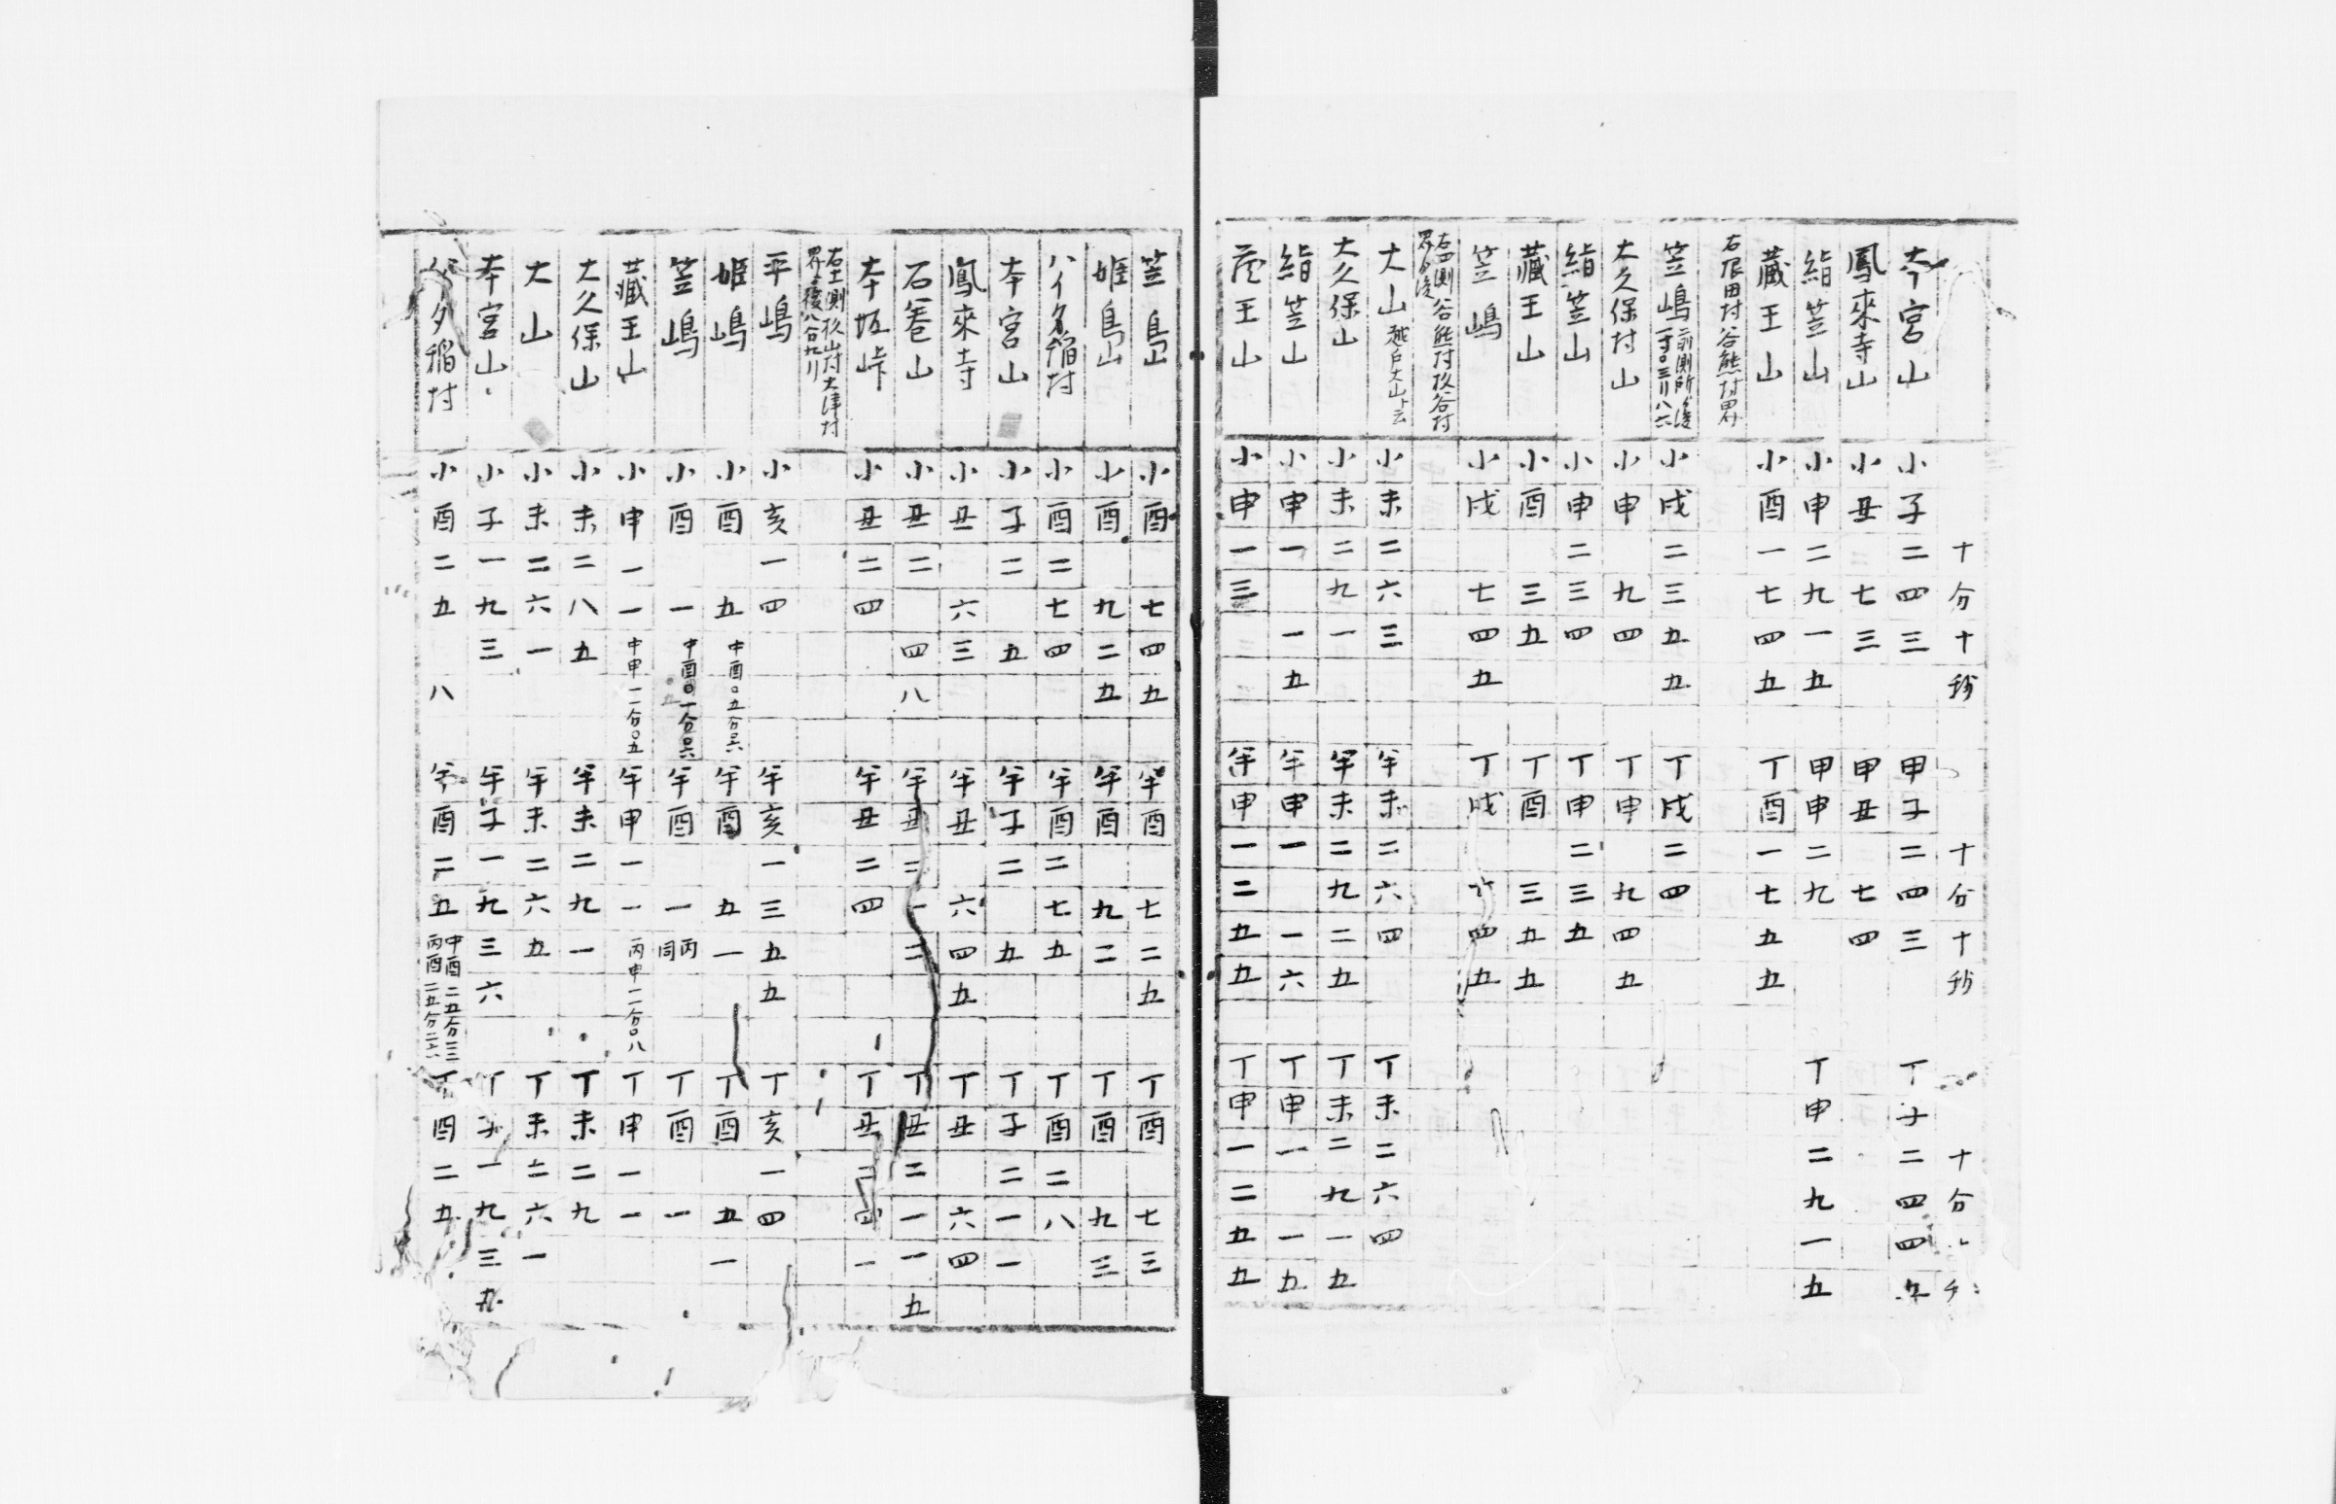 十分十秒 十分十秒 十分
本宮山 小子二四三 甲子二四三 丁子二四四
鳳來寺山 小丑七三 甲丑七四
絈笠山 小申二九一五 甲申二九 丁申二九一五
藏王山 小酉一七四五 丁酉一七五五
右依田村谷熊村界
笠嶋 小戌二三五五 丁戌二四
大久保村山 小申九四 丁申九四五
絈笠山 小申二三四 丁申二三五
藏王山 小酉三五 丁酉三五五
笠嶋 小戌七四五 丁戌 四五
谷熊村 谷村
大山 越戸大山ト云 小未二六三 半未二六四 丁未二六四
大久保山 小未二九一 半未二九二五 丁未二九一五
絈笠山 小申一一五 半申一一六 丁申一一五
藏王山 小申一三 半申一二五五 丁申一二五五
笠島 小酉七四五 半酉七二五 丁酉七三
姫島 小酉九二五 半酉九二 丁酉九三
小酉二七四 半酉二七五 丁酉二八
本宮山 小子二五 半子二五 丁子二一一
鳳來寺 小丑六三 半丑六四五 丁丑六四
石巻山 小丑二四八 半丑二一二 丁丑二一一五
本坂峠 小丑二四 半丑二四 丁丑二四一
大津村
平嶋 小亥一四 半亥一三五五 丁亥一四
姫嶋 小酉五 中酉〇五分〇六 半酉五一 丁酉五一
笠嶋 小酉一 中酉〇一分〇六 半酉一 丙同 丁酉一
藏王山 小申一一 中申一一分〇五 半申一一 丙申一一分〇八 丁申一一
大久保山 小未二八五 半未二九一 丁未二九
大山 小未二六一 半未二六五 丁未二六一
本宮山 小子一九三 半子一九三六 丁子一九三五
村 小酉二五八 半酉二五 中酉二五分三三 丙酉二五分二六 丁酉二五